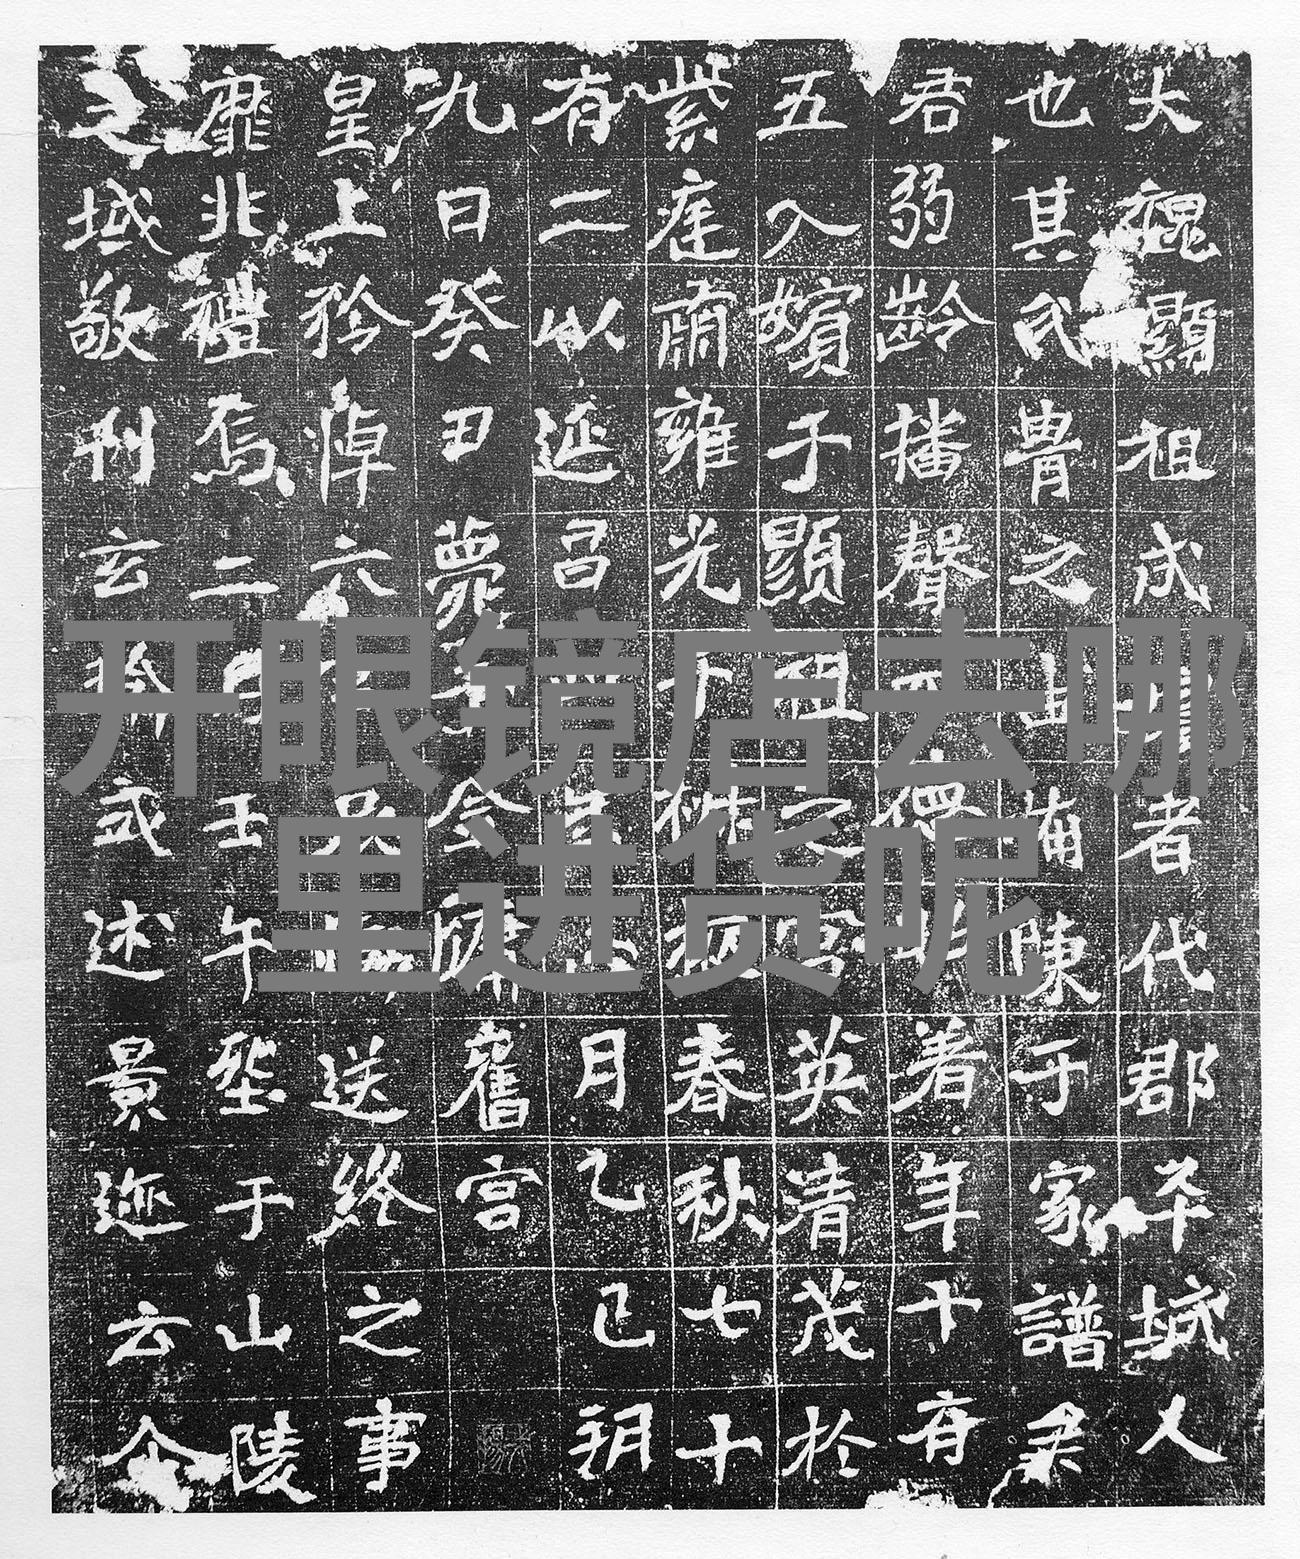 大魏顯祖成者代郡平城人
也其氏胄之備陳于家譜
君弱齡播聲德著年十有
五入嬪于顯祖之宮英清茂於
紫庭肅雍光于椒掖春秋七十
有二以延昌月乙巳朔
九日癸丑薨金墉舊宮
皇上矜悼六送終之事
靡非禮焉二月壬午塟于山陵
之域敬刊玄式述景迹云
开眼镜店去哪
里进货呢